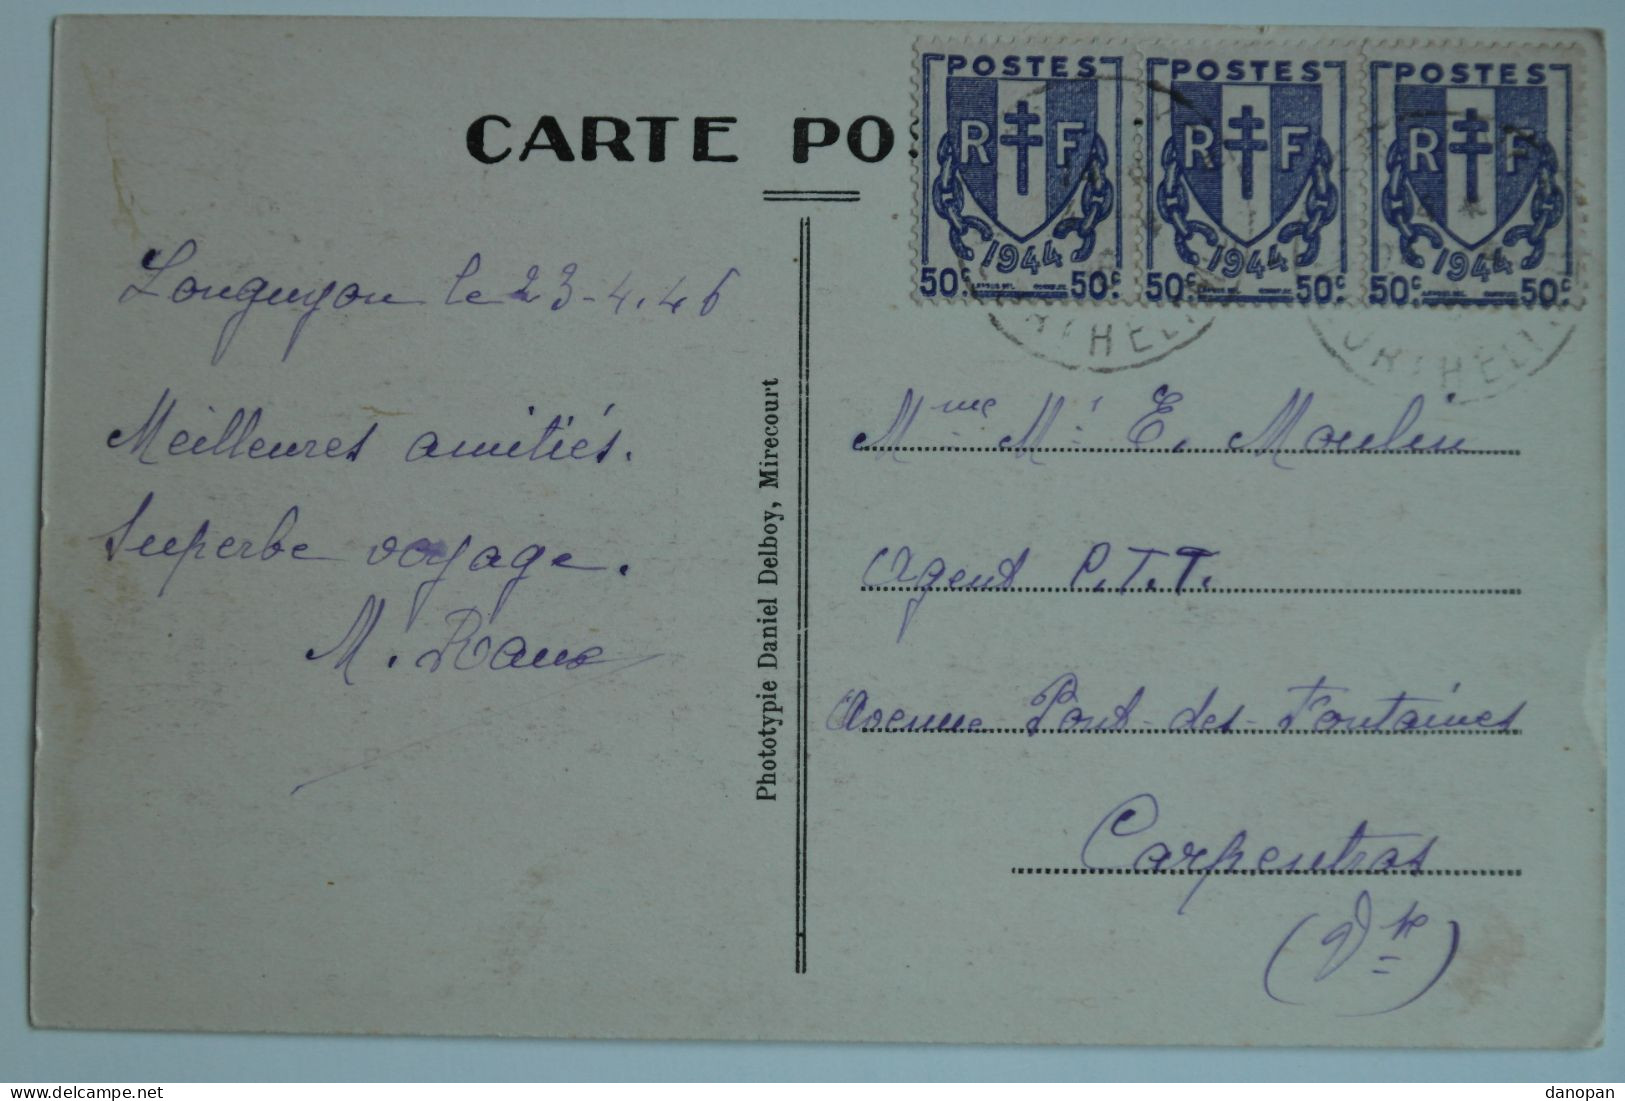 CARTE PO
POSTES
RF
1944
50c. 50c
POSTES
RF
1944
50c. 50c
POSTES
RF
1944
50c. 50c
Longuyon le 23-4.46
Meilleures amitiés.
Superbe voyage.
M. Raux
Phototypie Daniel Delboy, Mirecourt
Mme Mr E. Moulin
Agent P.T.T.
Avenue Pont-des-Fontaines
Carpentras
(Vse)
delcampe.net
danopan